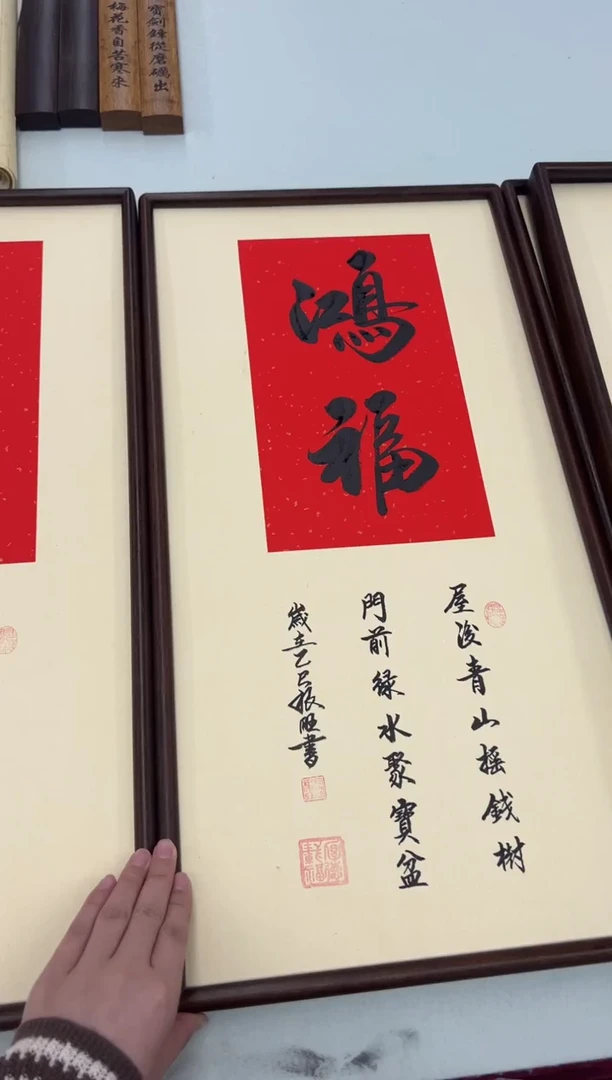 寶劍鋒從磨礪出
梅花香自苦寒來
鴻福
屋後青山搖錢樹
門前綠水聚寶盆
歲在乙巳振旺書